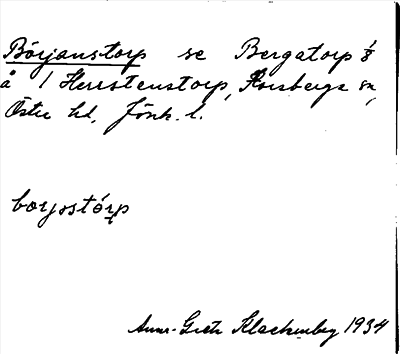 Börjanstorp se Bergatorp 1/8
å 1 Herrstenstorp, Korsberga sn,
Östra hd, Jönk. l.
bœrjostórp
Anna-Greta Klackenberg 1934